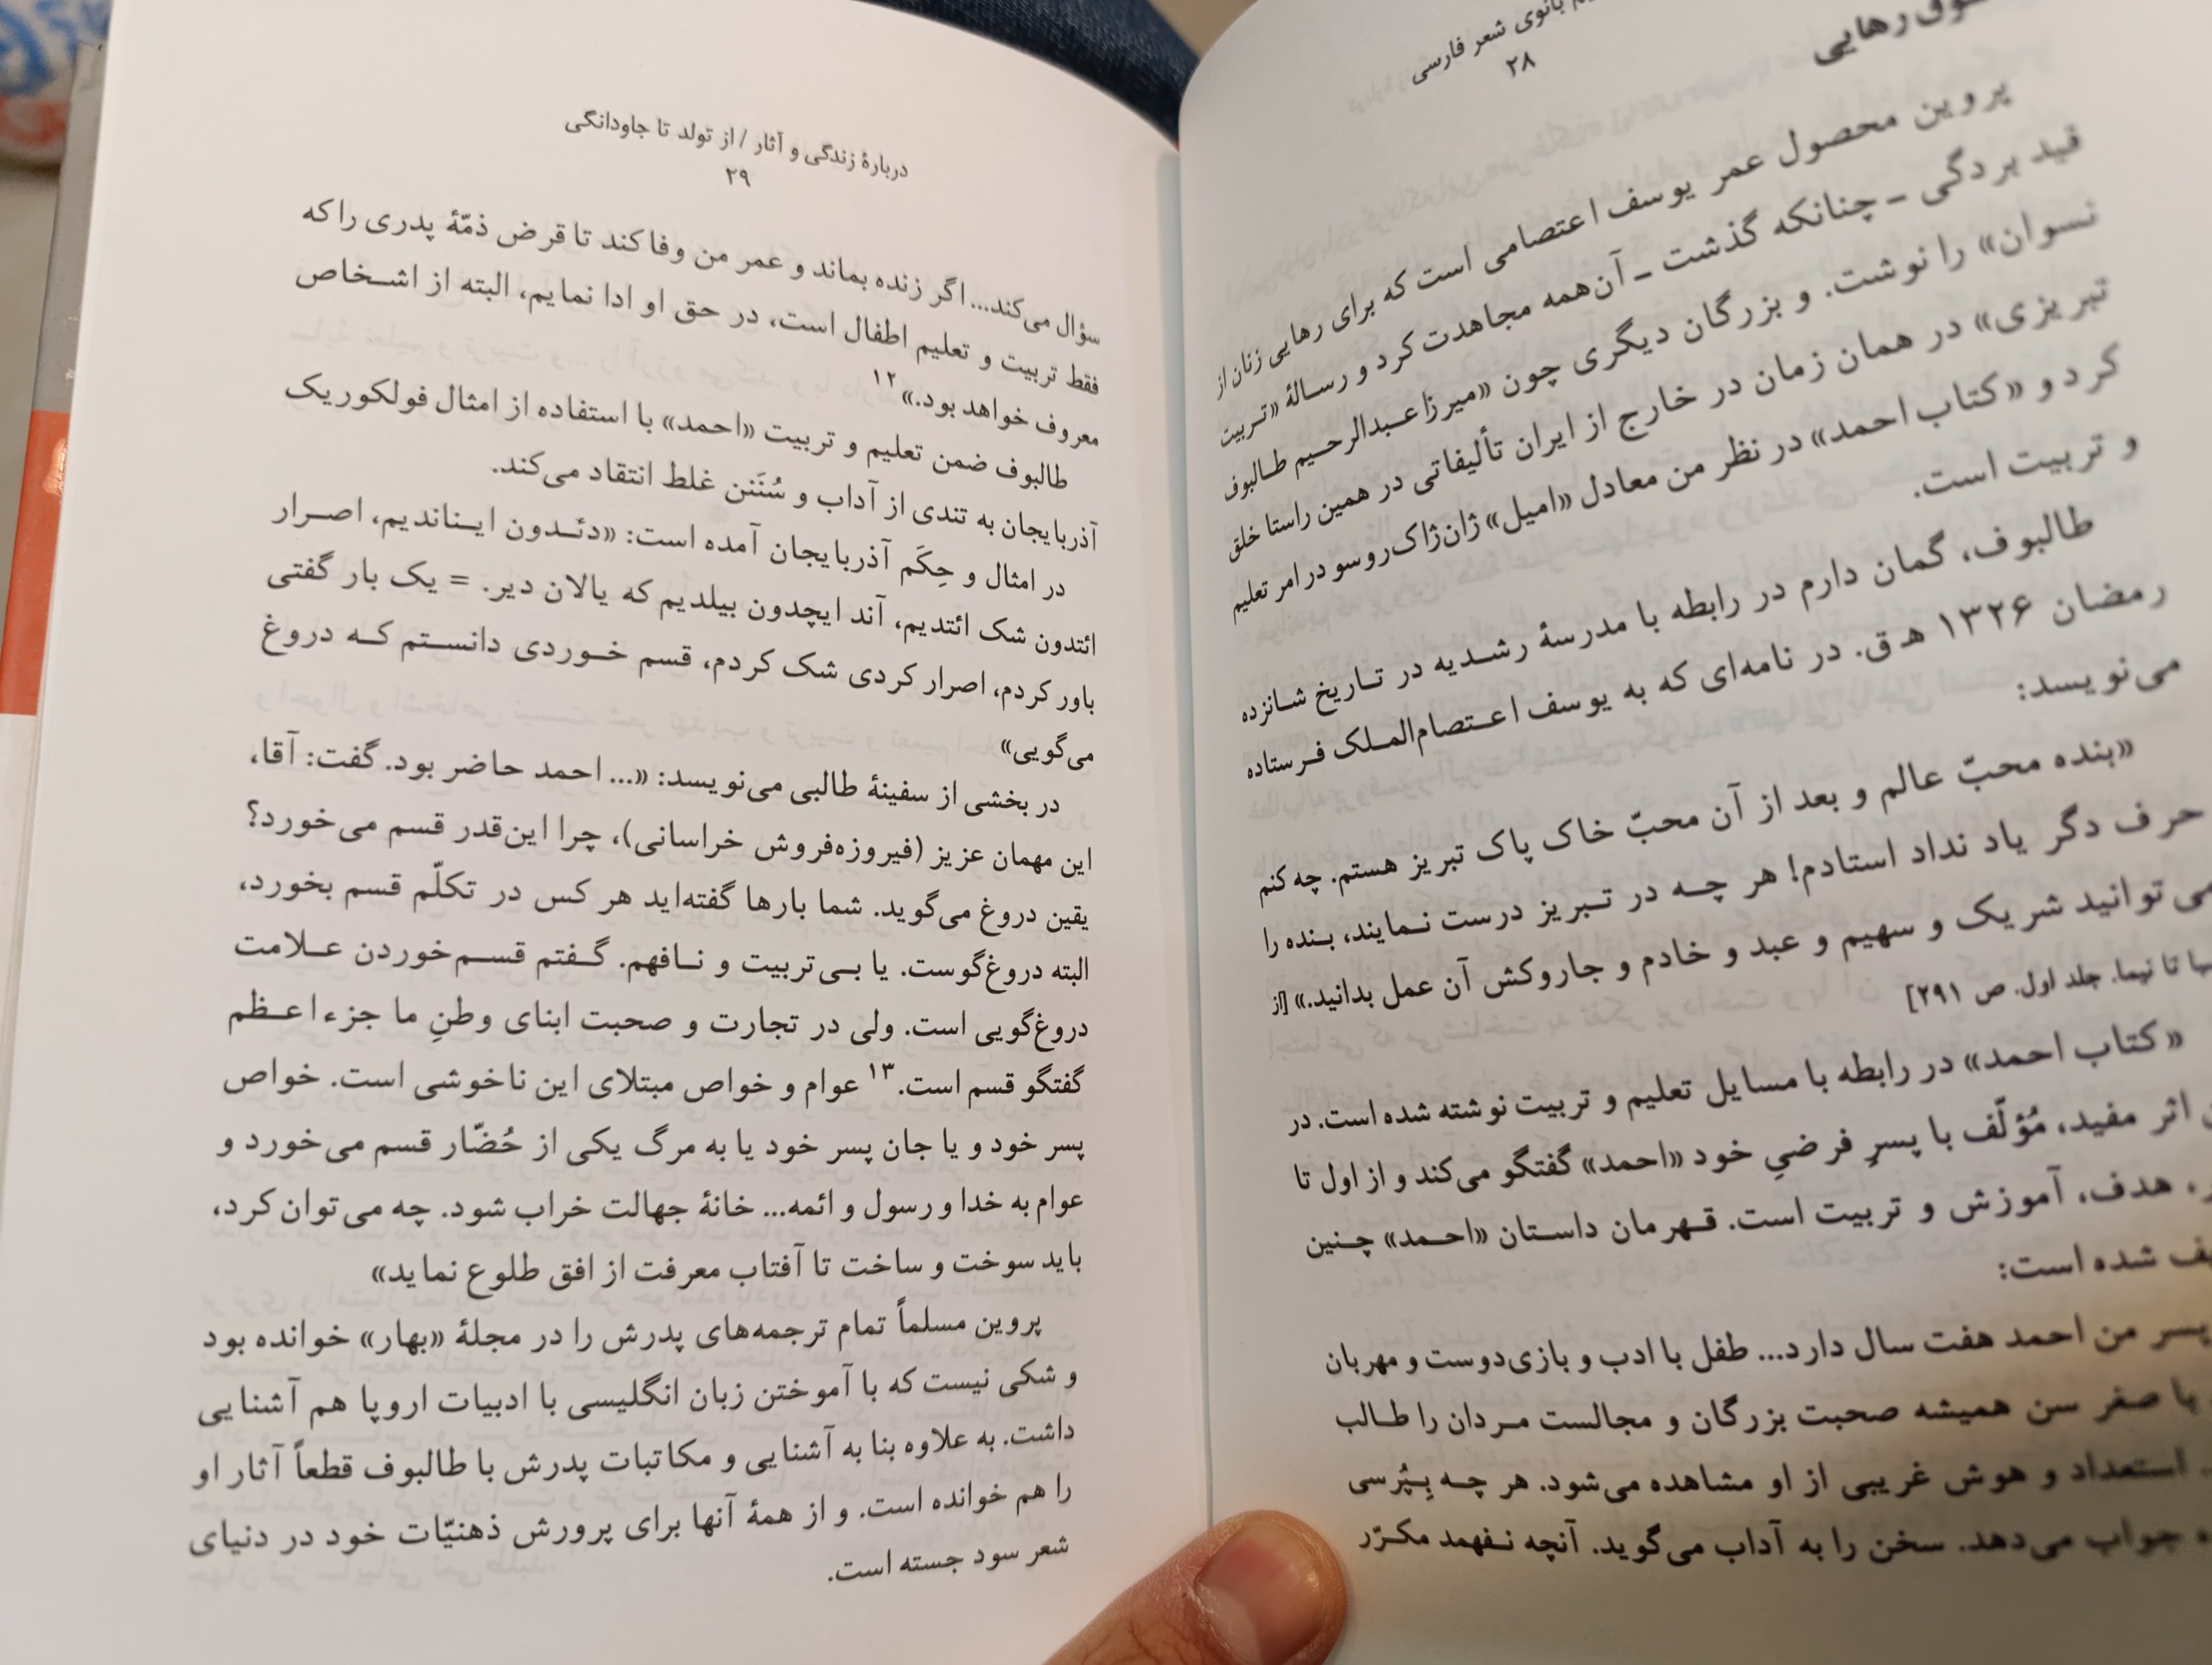 بانوی شعر فارسی
۲۸
رهایی
پروین محصول عمر یوسف اعتصامی است که برای رهایی زنان از
قید بردگی ـ چنانکه گذشت ـ آن‌همه مجاهدت کرد و رسالهٔ «تربیت
نسوان» را نوشت. و بزرگان دیگری چون «میرزا عبدالرحیم طالبوف
تبریزی» در همان زمان در خارج از ایران تألیفاتی در همین راستا خلق
کرد و «کتاب احمد» در نظر من معادل «امیل» ژان‌ژاک‌روسو در امر تعلیم
و تربیت است.
طالبوف، گمان دارم در رابطه با مدرسهٔ رشدیه در تاریخ شانزده
رمضان ۱۳۲۶ ه‍ ق. در نامه‌ای که به یوسف اعتصام‌الملک فرستاده
می‌نویسد:
«بنده محبّ عالم و بعد از آن محبّ خاک پاک تبریز هستم. چه کنم
حرف دگر یاد نداد استادم! هر چه در تبریز درست نمایند، بنده را
می‌توانید شریک و سهیم و عبد و خادم و جاروکش آن عمل بدانید.» [از
تا نیما. جلد اول. ص ۲۹۱]
«کتاب احمد» در رابطه با مسایل تعلیم و تربیت نوشته شده است. در
اثر مفید، مُؤلّف با پسرِ فرضیِ خود «احمد» گفتگو می‌کند و از اول تا
هدف، آموزش و تربیت است. قهرمان داستان «احمد» چنین
شده است:
پسر من احمد هفت سال دارد... طفل با ادب و بازی‌دوست و مهربان
با صغر سن همیشه صحبت بزرگان و مجالست مردان را طالب
استعداد و هوش غریبی از او مشاهده می‌شود. هر چه بِپُرسی
جواب می‌دهد. سخن را به آداب می‌گوید. آنچه نفهمد مکرّر
دربارهٔ زندگی و آثار / از تولد تا جاودانگی
۲۹
سؤال می‌کند... اگر زنده بماند و عمر من وفا کند تا قرض ذمّهٔ پدری را که
فقط تربیت و تعلیم اطفال است، در حق او ادا نمایم، البته از اشخاص
معروف خواهد بود.»۱۲
طالبوف ضمن تعلیم و تربیت «احمد» با استفاده از امثال فولکوریک
آذربایجان به تندی از آداب و سُنَنن غلط انتقاد می‌کند.
در امثال و حِکَم آذربایجان آمده است: «دئدون ایناندیم، اصرار
ائتدون شک ائتدیم، آند ایچدون بیلدیم که یالان دیر. = یک بار گفتی
باور کردم، اصرار کردی شک کردم، قسم خوردی دانستم که دروغ
می‌گویی»
در بخشی از سفینهٔ طالبی می‌نویسد: «... احمد حاضر بود. گفت: آقا،
این مهمان عزیز (فیروزه‌فروش خراسانی)، چرا این‌قدر قسم می‌خورد؟
یقین دروغ می‌گوید. شما بارها گفته‌اید هر کس در تکلّم قسم بخورد،
البته دروغ‌گوست. یا بی‌تربیت و نافهم. گفتم قسم‌خوردن علامت
دروغ‌گویی است. ولی در تجارت و صحبت ابنای وطنِ ما جزء اعظم
گفتگو قسم است.۱۳ عوام و خواص مبتلای این ناخوشی است. خواص
پسر خود و یا جان پسر خود یا به مرگ یکی از حُضّار قسم می‌خورد و
عوام به خدا و رسول و ائمه... خانهٔ جهالت خراب شود. چه می‌توان کرد،
باید سوخت و ساخت تا آفتاب معرفت از افق طلوع نماید»
پروین مسلماً تمام ترجمه‌های پدرش را در مجلهٔ «بهار» خوانده بود
و شکی نیست که با آموختن زبان انگلیسی با ادبیات اروپا هم آشنایی
داشت. به علاوه بنا به آشنایی و مکاتبات پدرش با طالبوف قطعاً آثار او
را هم خوانده است. و از همهٔ آنها برای پرورش ذهنیّات خود در دنیای
شعر سود جسته است.